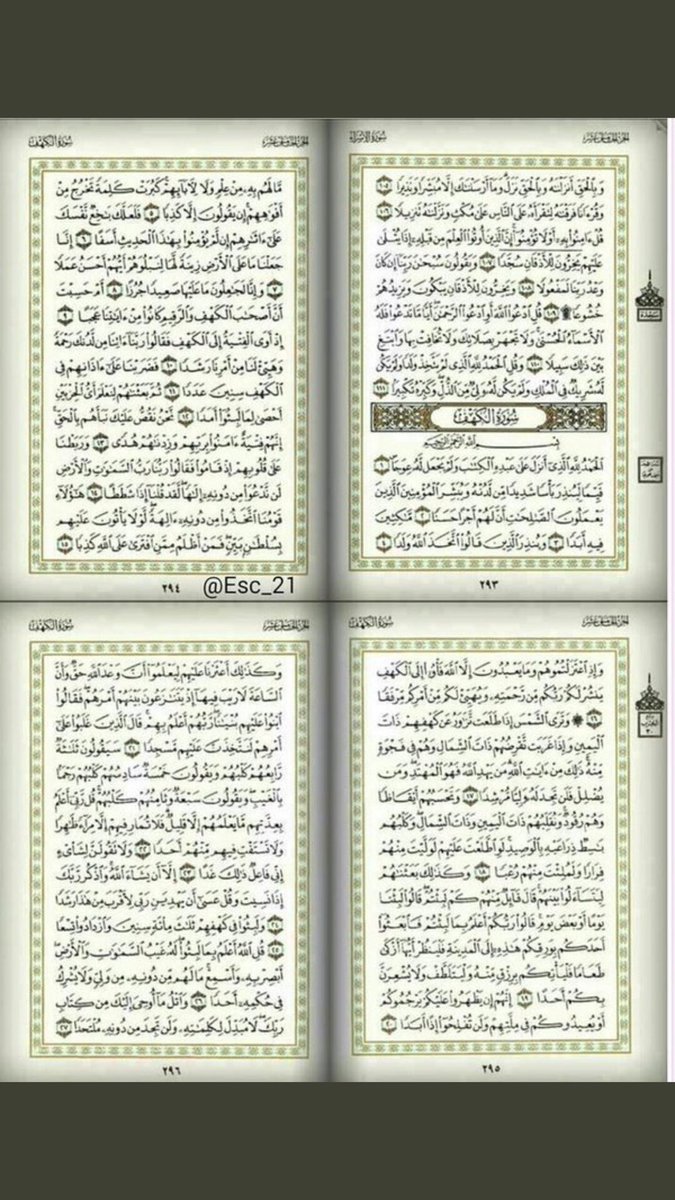 الجزء الخامس عشر
سورة الإسراء
وَبِالْحَقِّ أَنزَلْنَٰهُ وَبِالْحَقِّ نَزَلَ ۗ وَمَآ أَرْسَلْنَٰكَ إِلَّا مُبَشِّرًا وَنَذِيرًا ١٠٥
وَقُرْءَانًا فَرَقْنَٰهُ لِتَقْرَأَهُۥ عَلَى النَّاسِ عَلَىٰ مُكْثٍ وَنَزَّلْنَٰهُ تَنزِيلًا ١٠٦
قُلْ ءَامِنُوا۟ بِهِۦٓ أَوْ لَا تُؤْمِنُوٓا۟ ۚ إِنَّ الَّذِينَ أُوتُوا۟ الْعِلْمَ مِن قَبْلِهِۦٓ إِذَا يُتْلَىٰ
عَلَيْهِمْ يَخِرُّونَ لِلْأَذْقَانِ سُجَّدًا ١٠٧ وَيَقُولُونَ سُبْحَٰنَ رَبِّنَآ إِن كَانَ
وَعْدُ رَبِّنَا لَمَفْعُولًا ١٠٨ وَيَخِرُّونَ لِلْأَذْقَانِ يَبْكُونَ وَيَزِيدُهُمْ
خُشُوعًا ۩ ١٠٩ قُلِ ادْعُوا۟ اللَّهَ أَوِ ادْعُوا۟ الرَّحْمَٰنَ ۖ أَيًّا مَّا تَدْعُوا۟ فَلَهُ
الْأَسْمَآءُ الْحُسْنَىٰ ۚ وَلَا تَجْهَرْ بِصَلَاتِكَ وَلَا تُخَافِتْ بِهَا وَابْتَغِ
بَيْنَ ذَٰلِكَ سَبِيلًا ١١٠ وَقُلِ الْحَمْدُ لِلَّهِ الَّذِى لَمْ يَتَّخِذْ وَلَدًا وَلَمْ يَكُن
لَّهُۥ شَرِيكٌ فِى الْمُلْكِ وَلَمْ يَكُن لَّهُۥ وَلِىٌّ مِّنَ الذُّلِّ ۖ وَكَبِّرْهُ تَكْبِيرًۢا ١١١
سُورَةُ الْكَهْفِ
بِسْمِ اللَّهِ الرَّحْمَٰنِ الرَّحِيمِ
الْحَمْدُ لِلَّهِ الَّذِىٓ أَنزَلَ عَلَىٰ عَبْدِهِ الْكِتَٰبَ وَلَمْ يَجْعَل لَّهُۥ عِوَجَا ۜ ١
قَيِّمًا لِّيُنذِرَ بَأْسًا شَدِيدًا مِّن لَّدُنْهُ وَيُبَشِّرَ الْمُؤْمِنِينَ الَّذِينَ
يَعْمَلُونَ الصَّٰلِحَٰتِ أَنَّ لَهُمْ أَجْرًا حَسَنًا ٢ مَّٰكِثِينَ
فِيهِ أَبَدًا ٣ وَيُنذِرَ الَّذِينَ قَالُوا۟ اتَّخَذَ اللَّهُ وَلَدًا ٤
٢٩٣
الجزء الخامس عشر
سورة الكهف
مَّا لَهُم بِهِۦ مِنْ عِلْمٍ وَلَا لِءَابَآئِهِمْ ۚ كَبُرَتْ كَلِمَةً تَخْرُجُ مِنْ
أَفْوَٰهِهِمْ ۚ إِن يَقُولُونَ إِلَّا كَذِبًا ٥ فَلَعَلَّكَ بَٰخِعٌ نَّفْسَكَ
عَلَىٰٓ ءَاثَٰرِهِمْ إِن لَّمْ يُؤْمِنُوا۟ بِهَٰذَا الْحَدِيثِ أَسَفًا ٦ إِنَّا
جَعَلْنَا مَا عَلَى الْأَرْضِ زِينَةً لَّهَا لِنَبْلُوَهُمْ أَيُّهُمْ أَحْسَنُ عَمَلًا
٧ وَإِنَّا لَجَٰعِلُونَ مَا عَلَيْهَا صَعِيدًا جُرُزًا ٨ أَمْ حَسِبْتَ
أَنَّ أَصْحَٰبَ الْكَهْفِ وَالرَّقِيمِ كَانُوا۟ مِنْ ءَايَٰتِنَا عَجَبًا ٩
إِذْ أَوَى الْفِتْيَةُ إِلَى الْكَهْفِ فَقَالُوا۟ رَبَّنَآ ءَاتِنَا مِن لَّدُنكَ رَحْمَةً
وَهَيِّئْ لَنَا مِنْ أَمْرِنَا رَشَدًا ١٠ فَضَرَبْنَا عَلَىٰٓ ءَاذَانِهِمْ فِى
الْكَهْفِ سِنِينَ عَدَدًا ١١ ثُمَّ بَعَثْنَٰهُمْ لِنَعْلَمَ أَىُّ الْحِزْبَيْنِ
أَحْصَىٰ لِمَا لَبِثُوٓا۟ أَمَدًا ١٢ نَّحْنُ نَقُصُّ عَلَيْكَ نَبَأَهُم بِالْحَقِّ ۚ
إِنَّهُمْ فِتْيَةٌ ءَامَنُوا۟ بِرَبِّهِمْ وَزِدْنَٰهُمْ هُدًى ١٣ وَرَبَطْنَا
عَلَىٰ قُلُوبِهِمْ إِذْ قَامُوا۟ فَقَالُوا۟ رَبُّنَا رَبُّ السَّمَٰوَٰتِ وَالْأَرْضِ
لَن نَّدْعُوَا۟ مِن دُونِهِۦٓ إِلَٰهًا ۖ لَّقَدْ قُلْنَآ إِذًا شَطَطًا ١٤ هَٰٓؤُلَآءِ
قَوْمُنَا اتَّخَذُوا۟ مِن دُونِهِۦٓ ءَالِهَةً ۖ لَّوْلَا يَأْتُونَ عَلَيْهِم
بِسُلْطَٰنٍۭ بَيِّنٍ ۖ فَمَنْ أَظْلَمُ مِمَّنِ افْتَرَىٰ عَلَى اللَّهِ كَذِبًا ١٥
٢٩٤
@Esc_21
الجزء الخامس عشر
سورة الكهف
وَإِذِ اعْتَزَلْتُمُوهُمْ وَمَا يَعْبُدُونَ إِلَّا اللَّهَ فَأْوُۥٓا۟ إِلَى الْكَهْفِ
يَنشُرْ لَكُمْ رَبُّكُم مِّن رَّحْمَتِهِۦ وَيُهَيِّئْ لَكُم مِّنْ أَمْرِكُم مِّرْفَقًا
١٦ ۞ وَتَرَى الشَّمْسَ إِذَا طَلَعَت تَّزَٰوَرُ عَن كَهْفِهِمْ ذَاتَ
الْيَمِينِ وَإِذَا غَرَبَت تَّقْرِضُهُمْ ذَاتَ الشِّمَالِ وَهُمْ فِى فَجْوَةٍ
مِّنْهُ ۚ ذَٰلِكَ مِنْ ءَايَٰتِ اللَّهِ ۗ مَن يَهْدِ اللَّهُ فَهُوَ الْمُهْتَدِ ۖ وَمَن
يُضْلِلْ فَلَن تَجِدَ لَهُۥ وَلِيًّا مُّرْشِدًا ١٧ وَتَحْسَبُهُمْ أَيْقَاظًا
وَهُمْ رُقُودٌ ۚ وَنُقَلِّبُهُمْ ذَاتَ الْيَمِينِ وَذَاتَ الشِّمَالِ ۖ وَكَلْبُهُم
بَٰسِطٌ ذِرَاعَيْهِ بِالْوَصِيدِ ۚ لَوِ اطَّلَعْتَ عَلَيْهِمْ لَوَلَّيْتَ مِنْهُمْ
فِرَارًا وَلَمُلِئْتَ مِنْهُمْ رُعْبًا ١٨ وَكَذَٰلِكَ بَعَثْنَٰهُمْ
لِيَتَسَآءَلُوا۟ بَيْنَهُمْ ۚ قَالَ قَآئِلٌ مِّنْهُمْ كَمْ لَبِثْتُمْ ۖ قَالُوا۟ لَبِثْنَا
يَوْمًا أَوْ بَعْضَ يَوْمٍ ۚ قَالُوا۟ رَبُّكُمْ أَعْلَمُ بِمَا لَبِثْتُمْ فَابْعَثُوٓا۟
أَحَدَكُم بِوَرِقِكُمْ هَٰذِهِۦٓ إِلَى الْمَدِينَةِ فَلْيَنظُرْ أَيُّهَآ أَزْكَىٰ
طَعَامًا فَلْيَأْتِكُم بِرِزْقٍ مِّنْهُ وَلْيَتَلَطَّفْ وَلَا يُشْعِرَنَّ
بِكُمْ أَحَدًا ١٩ إِنَّهُمْ إِن يَظْهَرُوا۟ عَلَيْكُمْ يَرْجُمُوكُمْ
أَوْ يُعِيدُوكُمْ فِى مِلَّتِهِمْ وَلَن تُفْلِحُوٓا۟ إِذًا أَبَدًا ٢٠
٢٩٥
الجزء الخامس عشر
سورة الكهف
وَكَذَٰلِكَ أَعْثَرْنَا عَلَيْهِمْ لِيَعْلَمُوٓا۟ أَنَّ وَعْدَ اللَّهِ حَقٌّ وَأَنَّ
السَّاعَةَ لَا رَيْبَ فِيهَآ إِذْ يَتَنَٰزَعُونَ بَيْنَهُمْ أَمْرَهُمْ ۖ فَقَالُوا۟
ابْنُوا۟ عَلَيْهِم بُنْيَٰنًا ۖ رَّبُّهُمْ أَعْلَمُ بِهِمْ ۚ قَالَ الَّذِينَ غَلَبُوا۟ عَلَىٰٓ
أَمْرِهِمْ لَنَتَّخِذَنَّ عَلَيْهِم مَّسْجِدًا ٢١ سَيَقُولُونَ ثَلَٰثَةٌ
رَّابِعُهُمْ كَلْبُهُمْ وَيَقُولُونَ خَمْسَةٌ سَادِسُهُمْ كَلْبُهُمْ رَجْمًۢا
بِالْغَيْبِ ۖ وَيَقُولُونَ سَبْعَةٌ وَثَامِنُهُمْ كَلْبُهُمْ ۚ قُل رَّبِّىٓ أَعْلَمُ
بِعِدَّتِهِم مَّا يَعْلَمُهُمْ إِلَّا قَلِيلٌ ۗ فَلَا تُمَارِ فِيهِمْ إِلَّا مِرَآءً ظَٰهِرًا
وَلَا تَسْتَفْتِ فِيهِم مِّنْهُمْ أَحَدًا ٢٢ وَلَا تَقُولَنَّ لِشَا۟ىْءٍ
إِنِّى فَاعِلٌ ذَٰلِكَ غَدًا ٢٣ إِلَّآ أَن يَشَآءَ اللَّهُ ۚ وَاذْكُر رَّبَّكَ
إِذَا نَسِيتَ وَقُلْ عَسَىٰٓ أَن يَهْدِيَنِ رَبِّى لِأَقْرَبَ مِنْ هَٰذَا رَشَدًا
٢٤ وَلَبِثُوا۟ فِى كَهْفِهِمْ ثَلَٰثَ مِا۟ئَةٍ سِنِينَ وَازْدَادُوا۟ تِسْعًا
٢٥ قُلِ اللَّهُ أَعْلَمُ بِمَا لَبِثُوا۟ ۖ لَهُۥ غَيْبُ السَّمَٰوَٰتِ وَالْأَرْضِ ۖ
أَبْصِرْ بِهِۦ وَأَسْمِعْ ۚ مَا لَهُم مِّن دُونِهِۦ مِن وَلِىٍّ وَلَا يُشْرِكُ
فِى حُكْمِهِۦٓ أَحَدًا ٢٦ وَاتْلُ مَآ أُوحِىَ إِلَيْكَ مِن كِتَابِ
رَبِّكَ ۖ لَا مُبَدِّلَ لِكَلِمَٰتِهِۦ وَلَن تَجِدَ مِن دُونِهِۦ مُلْتَحَدًا ٢٧
٢٩٦